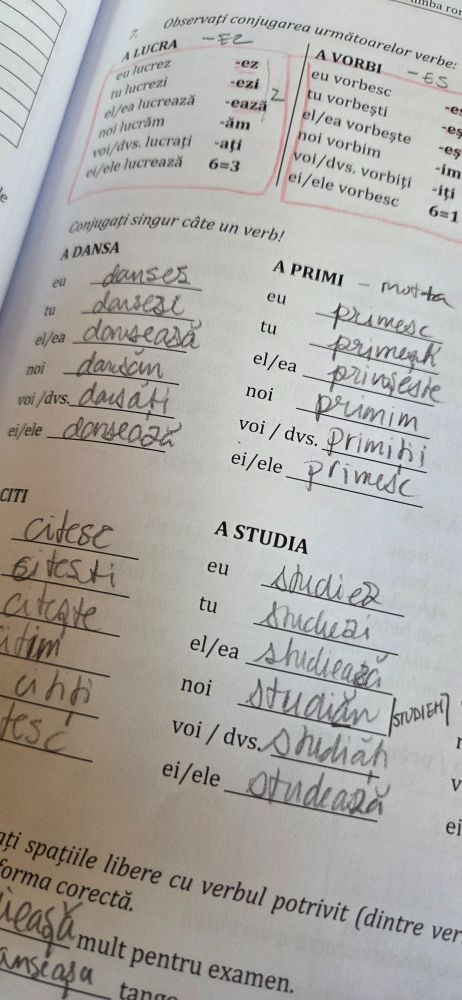 limba ror
7. Observați conjugarea următoarelor verbe:
A LUCRA - EZ
eu lucrez -ez
tu lucrezi -ezi
el/ea lucrează -ează
noi lucrăm -ăm
voi/dvs. lucrați -ați
ei/ele lucrează 6=3
A VORBI - ES
eu vorbesc -es
tu vorbești -eș
el/ea vorbește -eș
noi vorbim -im
voi/dvs. vorbiți -iți
ei/ele vorbesc 6=1
Conjugați singur câte un verb!
A DANSA
eu danses
tu dansezi
el/ea dansează
noi dansăn
voi/dvs. dansăți
ei/ele dansează
A PRIMI
eu primesc
tu
el/ea primește
noi primim
voi / dvs. primiții
ei/ele primesc
CITI
citesc
citesti
citește
itim
citiți
tesc
A STUDIA
eu studiez
tu studiezi
el/ea studiează
noi studiăn [STUDIEM]
voi / dvs. studiăți
ei/ele studează
v
ei
ați spațiile libere cu verbul potrivit (dintre ver
forma corectă.
mult pentru examen.
tango